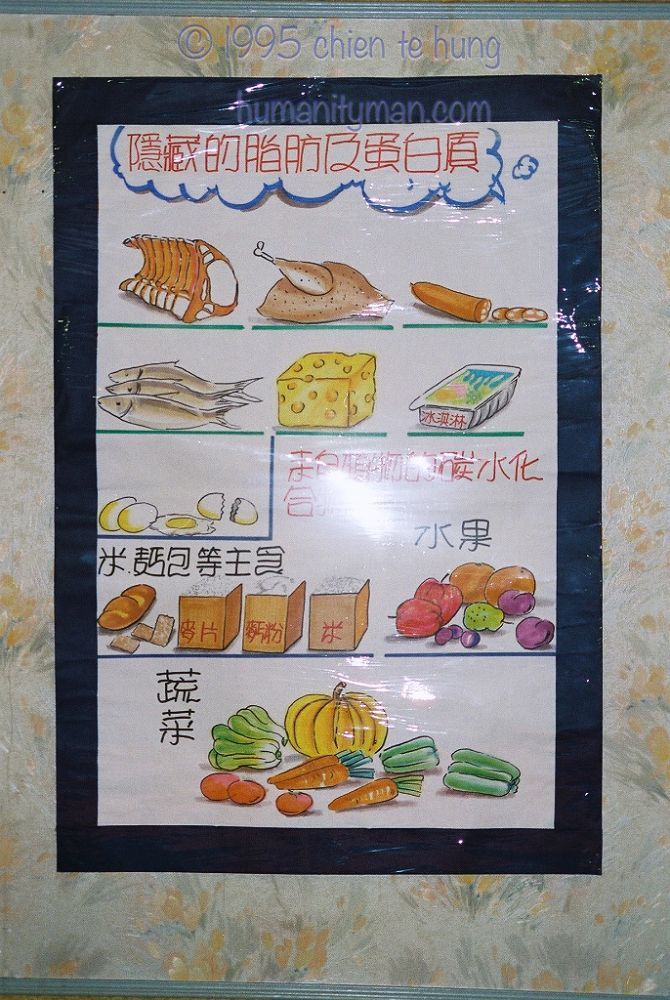 © 1995 chien te hung
humanityman.com
隱藏的脂肪及蛋白原
冰淇淋
来自植物的碳水化
合
水果
米.麵包等主食
麥片
麵粉
米
蔬菜